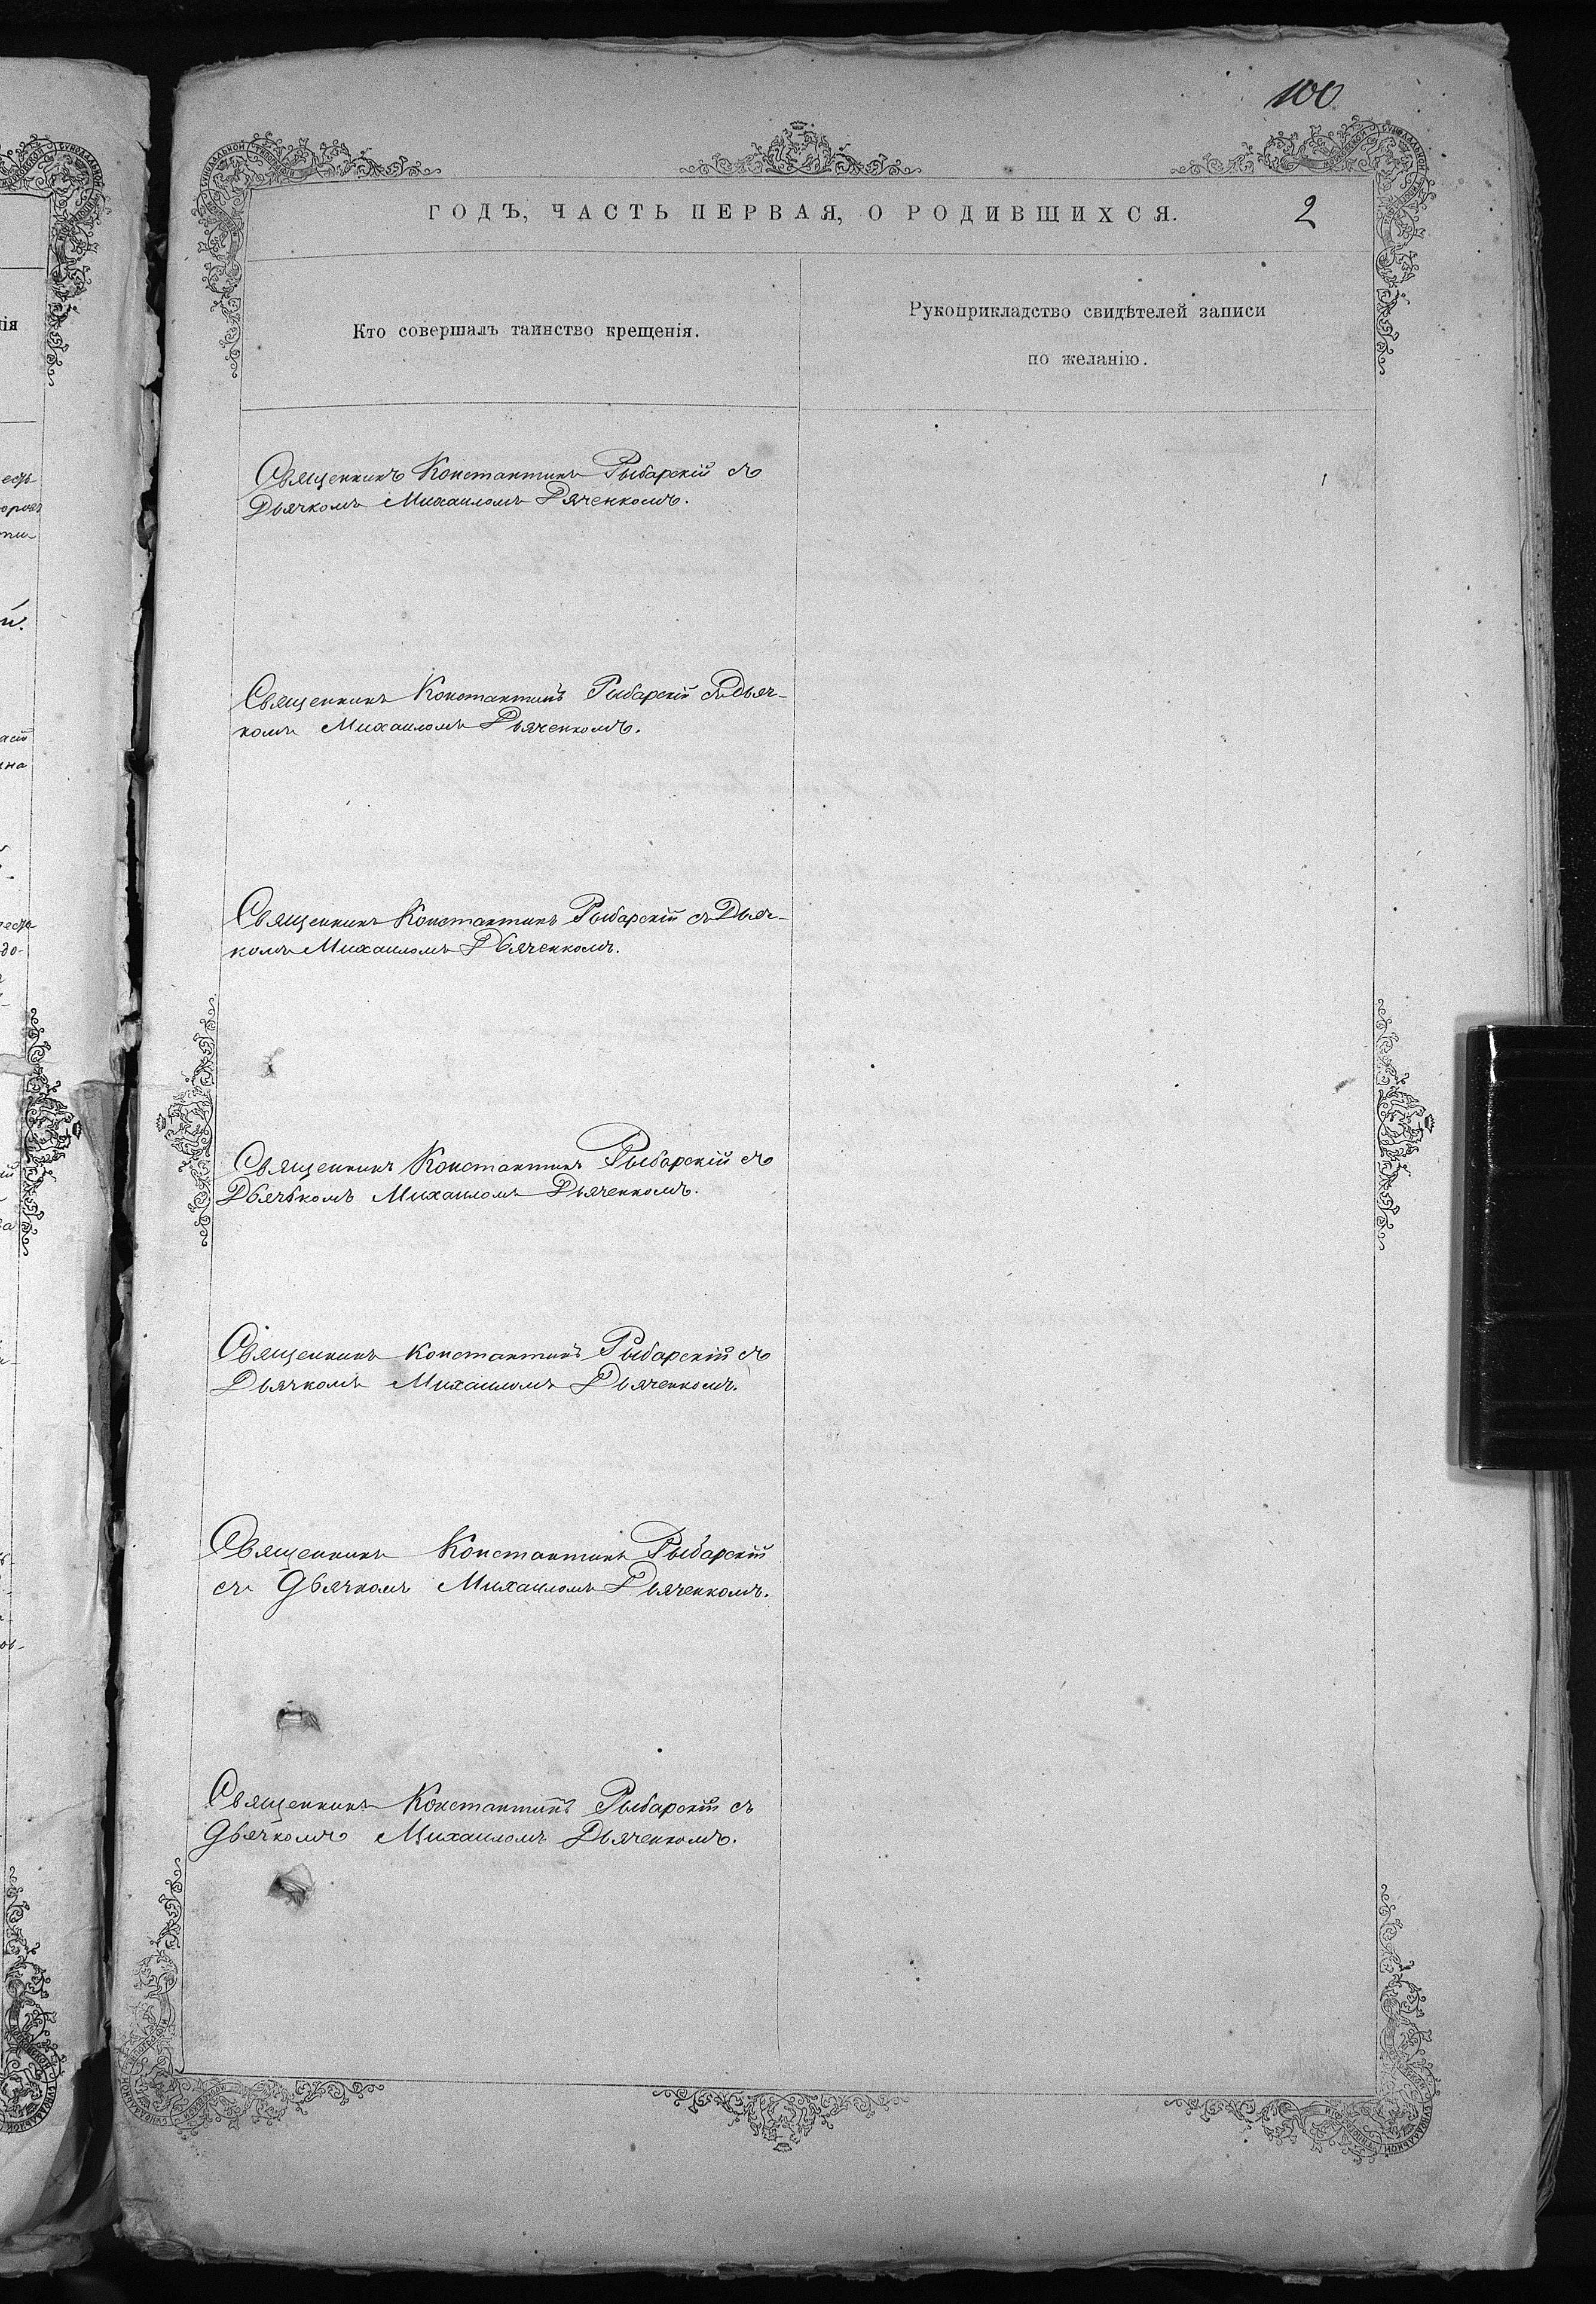 100
ГОДЪ, ЧАСТЬ ПЕРВАЯ, О РОДИВШИХСЯ.
2
Кто совершалъ таинство крещенія.
Рукоприкладство свидѣтелей записи
по желанію.
Священникъ Константинъ Рыбарскій съ
Дьячкомъ Михаиломъ Дяченкомъ.
Священникъ Константинъ Рыбарскій съ Дьяч-
комъ Михаиломъ Дьяченкомъ.
Священникъ Константинъ Рыбарскій съ Дьяч-
комъ Михаиломъ Дьяченкомъ.
Священникъ Константинъ Рыбарскій съ
Дьячькомъ Михаиломъ Дьяченкомъ.
Священникъ Константинъ Рыбарскій съ
Дьячкомъ Михаиломъ Дьяченкомъ.
Священникъ Константинъ Рыбарскій
съ Дьячкомъ Михаиломъ Дьяченкомъ.
Священникъ Константинъ Рыбарскій съ
Дьячкомъ Михаиломъ Дьяченкомъ.